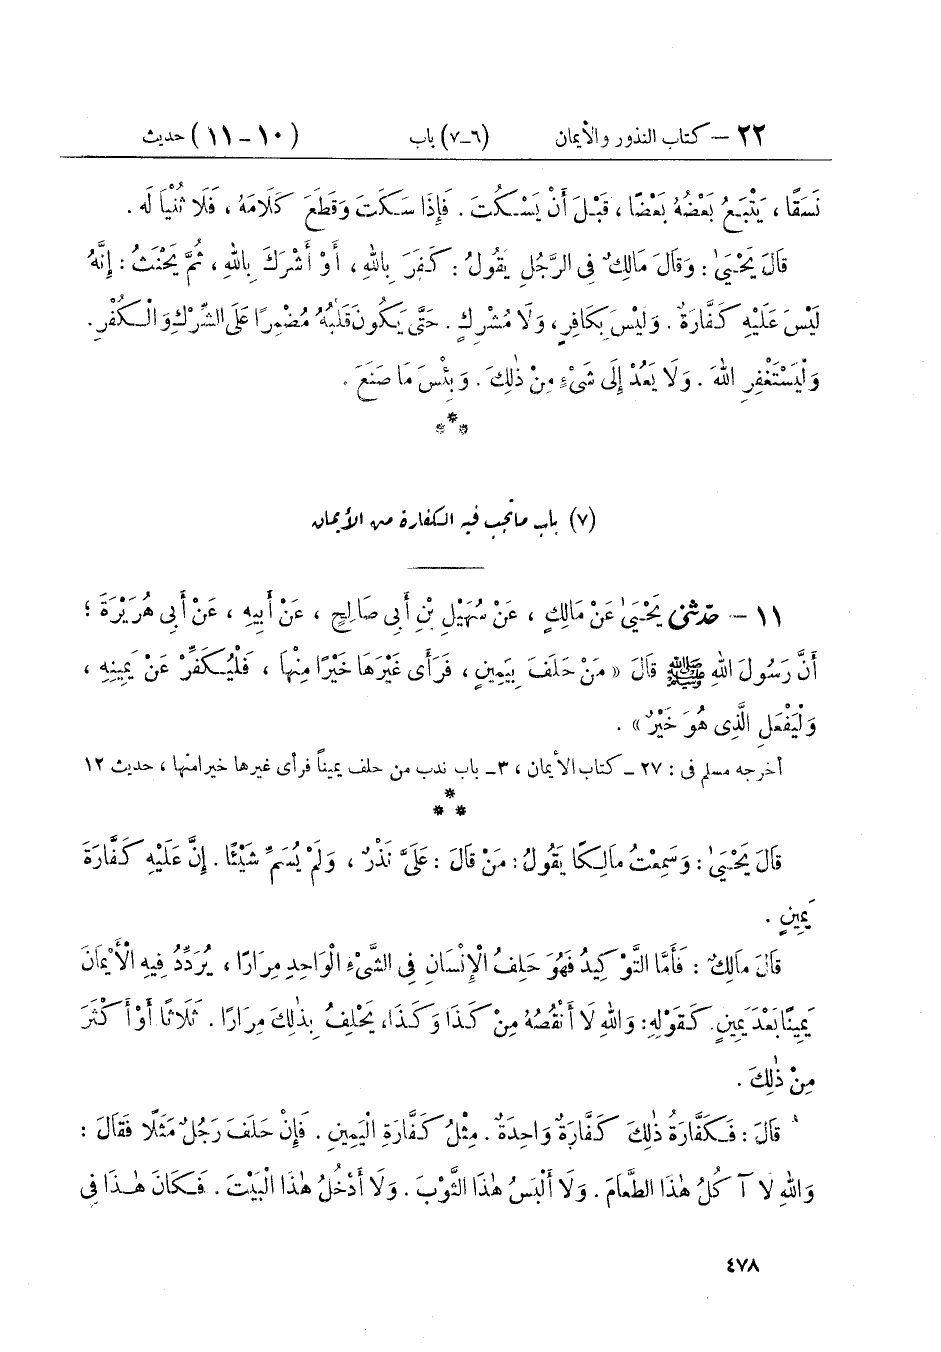 ٢٢ – كتاب النذور والأيمان (٦-٧) باب (١٠ – ١١) حديث
نَسَقًا ، يَتْبَعُ بَعْضُهُ بَعْضًا ، قَبْلَ أَنْ يَسْكُتَ . فَإِذَا سَكَتَ وَقَطَعَ كَلَامَهُ ، فَلَا ثُنْيَا لَه .
قَالَ يَحْيَىٰ : وَقَالَ مَالِكٌ فِي الرَّجُلِ يَقُولُ : كَفَرَ بِاللهِ ، أَوْ أَشْرَكَ بِاللهِ ، ثُمَّ يَحْنَثُ : إِنَّهُ
لَيْسَ عَلَيْهِ كَفَّارَةٌ . وَلَيْسَ بِكَافِرٍ ، وَلَا مُشْرِكٍ . حَتَّى يَكُونَ قَلْبُهُ مُضْمِرًا عَلَى الشِّرْكِ وَالْكُفْرِ .
وَلْيَسْتَغْفِرِ اللهَ . وَلَا يَعُدْ إِلَى شَيْءٍ مِنْ ذَٰلِكَ . وَبِئْسَ مَا صَنَعَ .
***
(٧) باب ما تجب فيه الكفارة من الأيمان
١١ – حدّثنى يَحْيَىٰ عَنْ مَالِكٍ ، عَنْ سُهَيْلِ بْنِ أَبِى صَالِحٍ ، عَنْ أَبِيهِ ، عَنْ أَبِى هُرَيْرَةَ ؛
أَنَّ رَسُولَ اللهِ ﷺ قَالَ « مَنْ حَلَفَ بِيَمِينٍ ، فَرَأَى غَيْرَهَا خَيْرًا مِنْهَا ، فَلْيُكَفِّرْ عَنْ يَمِينِهِ ،
وَلْيَفْعَلِ الَّذِى هُوَ خَيْرٌ » .
أخرجه مسلم فى : ٢٧ – كتاب الأيمان ، ٣- باب ندب من حلف يمينًا فرأى غيرها خيرا منها ، حديث ١٢
***
قَالَ يَحْيَىٰ : وَسَمِعْتُ مَالِكًا يَقُولُ : مَنْ قَالَ : عَلَىَّ نَذْرٌ ، وَلَمْ يُسَمِّ شَيْئًا . إِنَّ عَلَيْهِ كَفَّارَةَ
يَمِينٍ .
قَالَ مَالِكٌ : فَأَمَّا التَّوْكِيدُ فَهُوَ حَلِفُ الْإِنْسَانِ فِي الشَّيْءِ الْوَاحِدِ مِرَارًا ، يُرَدِّدُ فِيهِ الْأَيْمَانَ
يَمِينًا بَعْدَ يَمِينٍ . كَقَوْلِهِ : وَاللهِ لَا أَنْقُصُهُ مِنْ كَذَا وَكَذَا ، يَحْلِفُ بِذٰلِكَ مِرَارًا . ثَلَاثًا أَوْ أَكْثَرَ
مِنْ ذٰلِكَ .
قَالَ : فَكَفَّارَةُ ذٰلِكَ كَفَّارَةٌ وَاحِدَةٌ . مِثْلُ كَفَّارَةِ الْيَمِينِ . فَإِنْ حَلَفَ رَجُلٌ مَثَلًا فَقَالَ :
وَاللهِ لَا آ كُلُ هٰذَا الطَّعَامَ . وَلَا أَلْبَسُ هٰذَا الثَّوْبَ . وَلَا أَدْخُلُ هٰذَا الْبَيْتَ . فَكَانَ هٰذَا فِي
٤٧٨